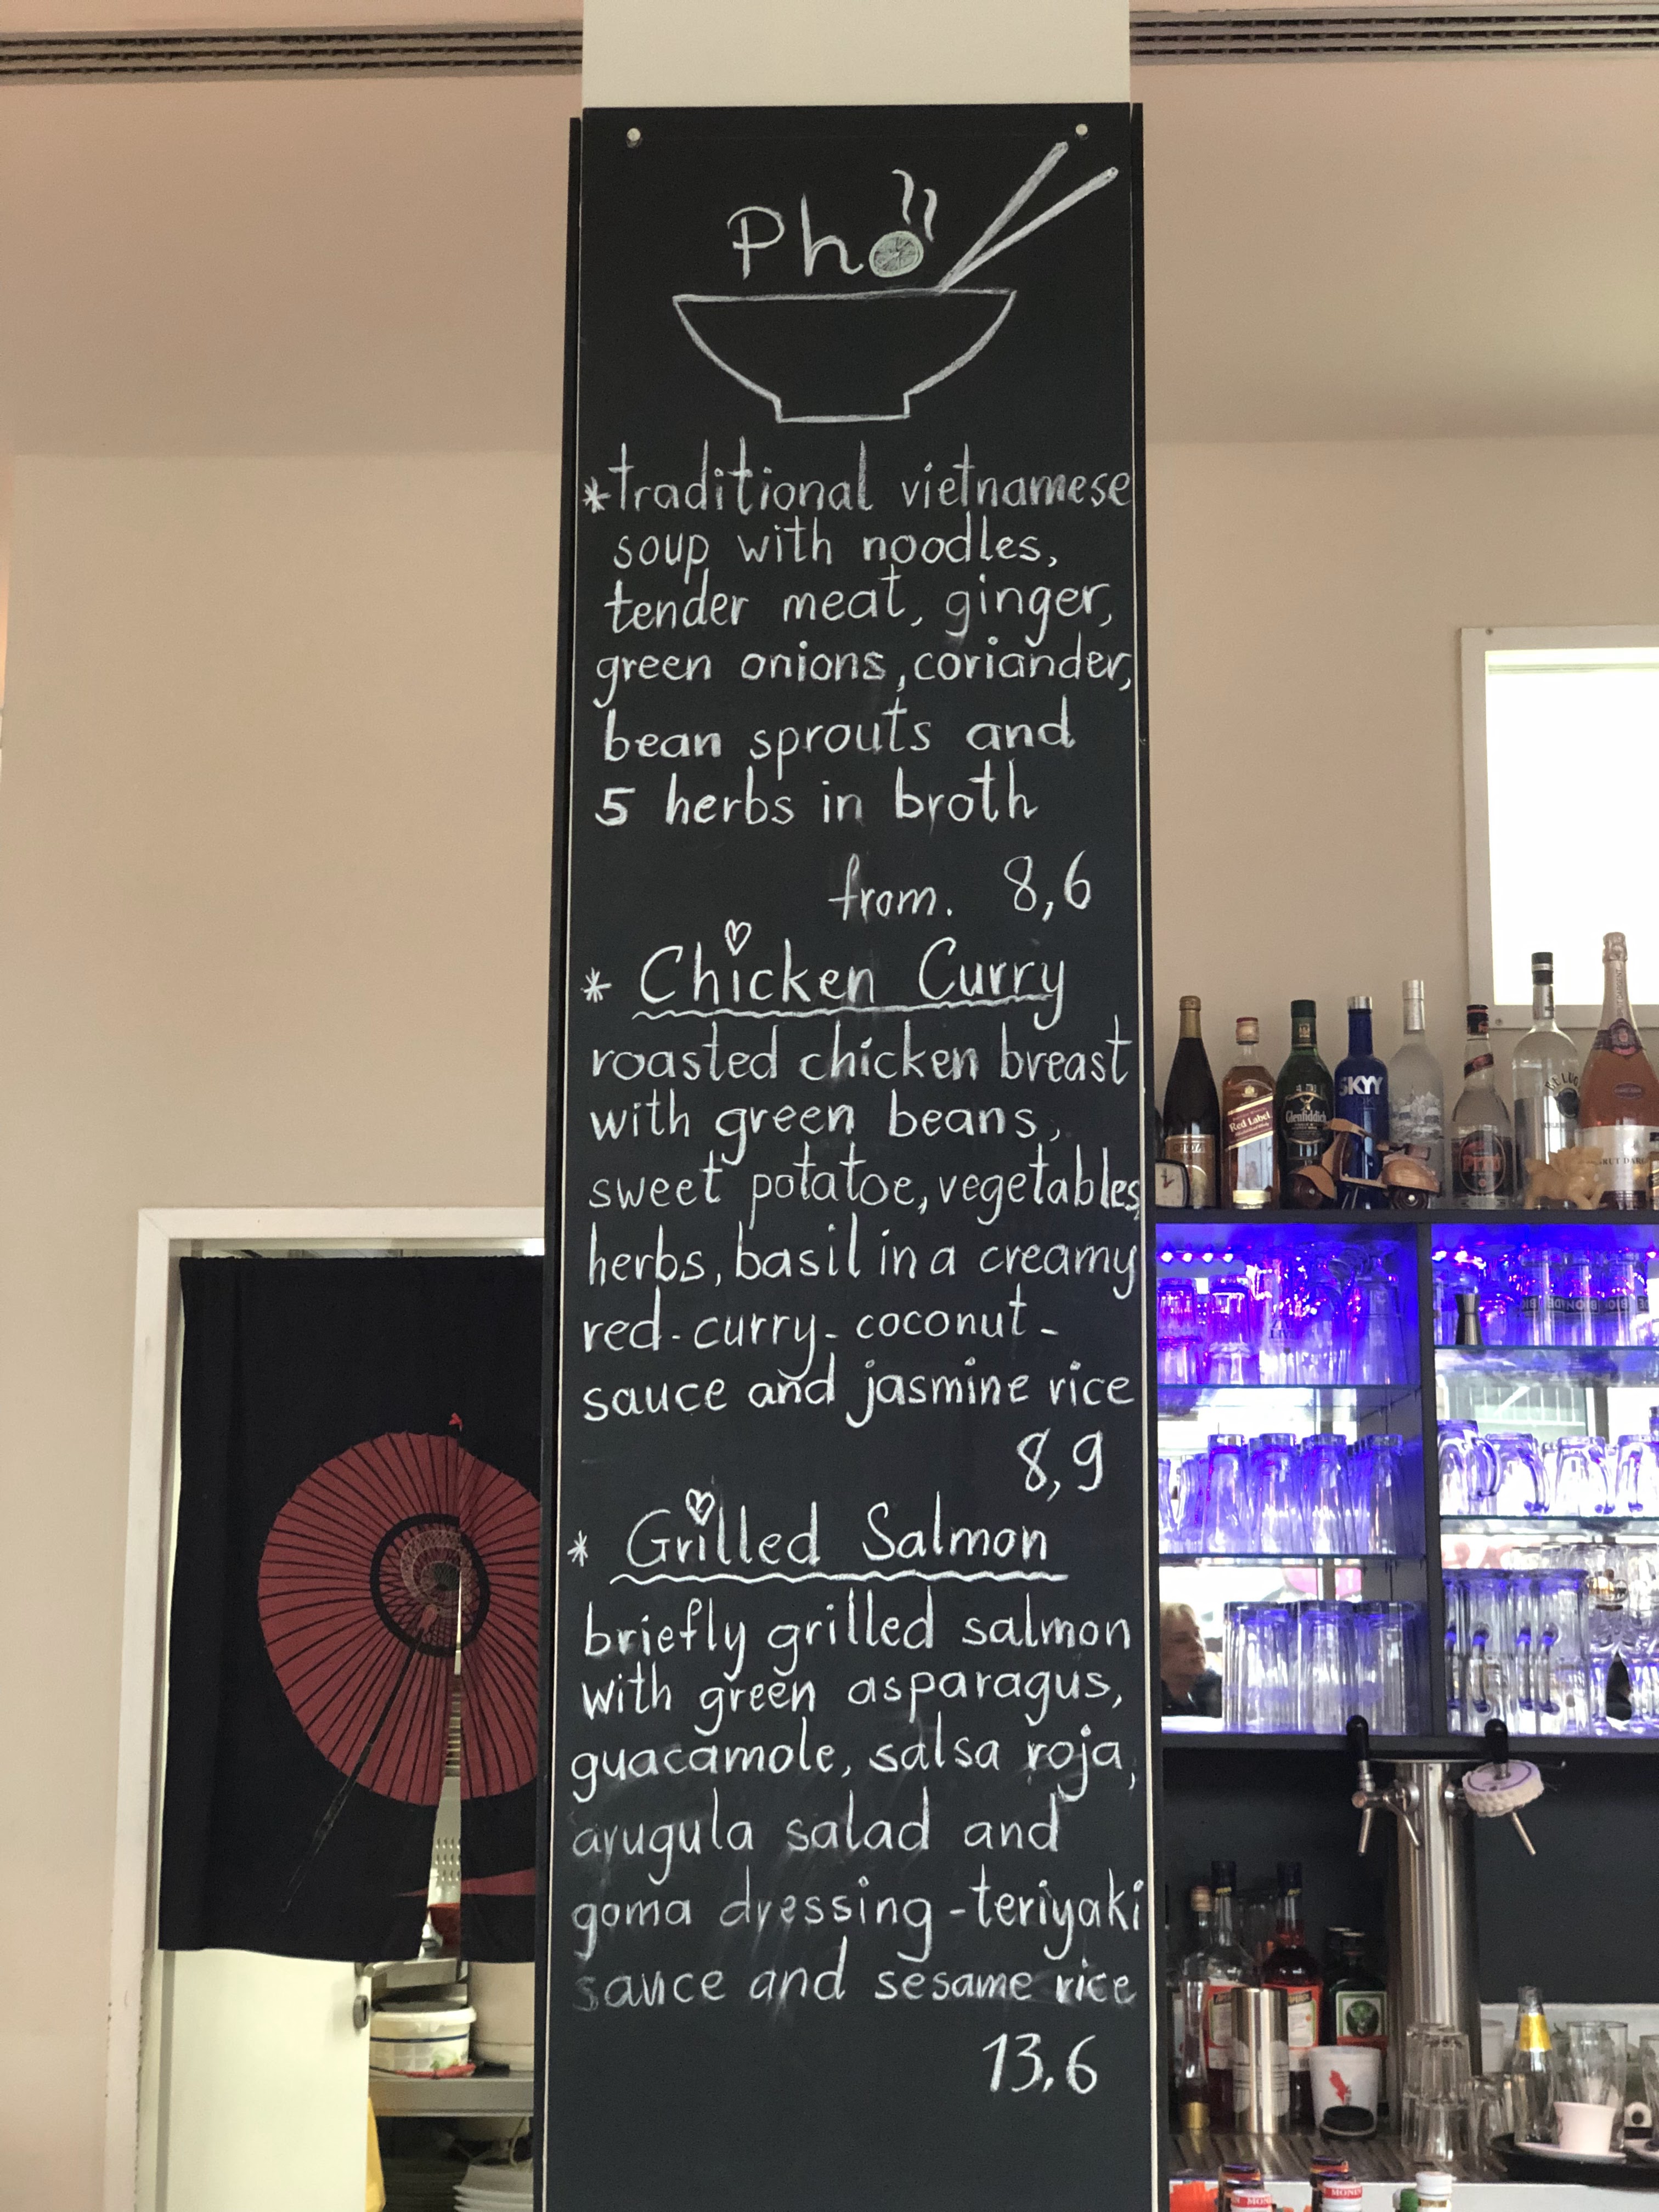 Pho
*traditional vietnamese
soup with noodles,
tender meat, ginger,
green onions, coriander,
bean sprouts and
5 herbs in broth
from. 8,6
* Chicken Curry
roasted chicken breast
with green beans,
sweet potatoe, vegetables,
herbs, basil in a creamy
red-curry-coconut-
sauce and jasmine rice
8,9
* Grilled Salmon
briefly grilled salmon
with green asparagus,
guacamole, salsa roja,
arugula salad and
goma dressing-teriyaki
sauce and sesame rice
13,6
Red Label
Glenfiddich
SKYY
MONIN